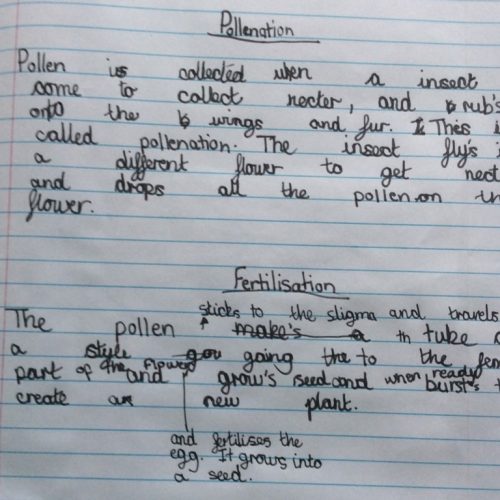 Pollenation
Pollen is collected when a insect
come to collect necter, and rub's
onto the wings and fur. This i
called pollenation. The insect fly's i
a different flower to get nect
and drops all the pollen on th
flower.
Fertilisation
sticks to the stigma and travels
The pollen make's a th tube
a style going the to the fem
part of the flower and grow's seed and when ready burst's t
create a new plant.
and fertilises the
egg. It grows into
a seed.